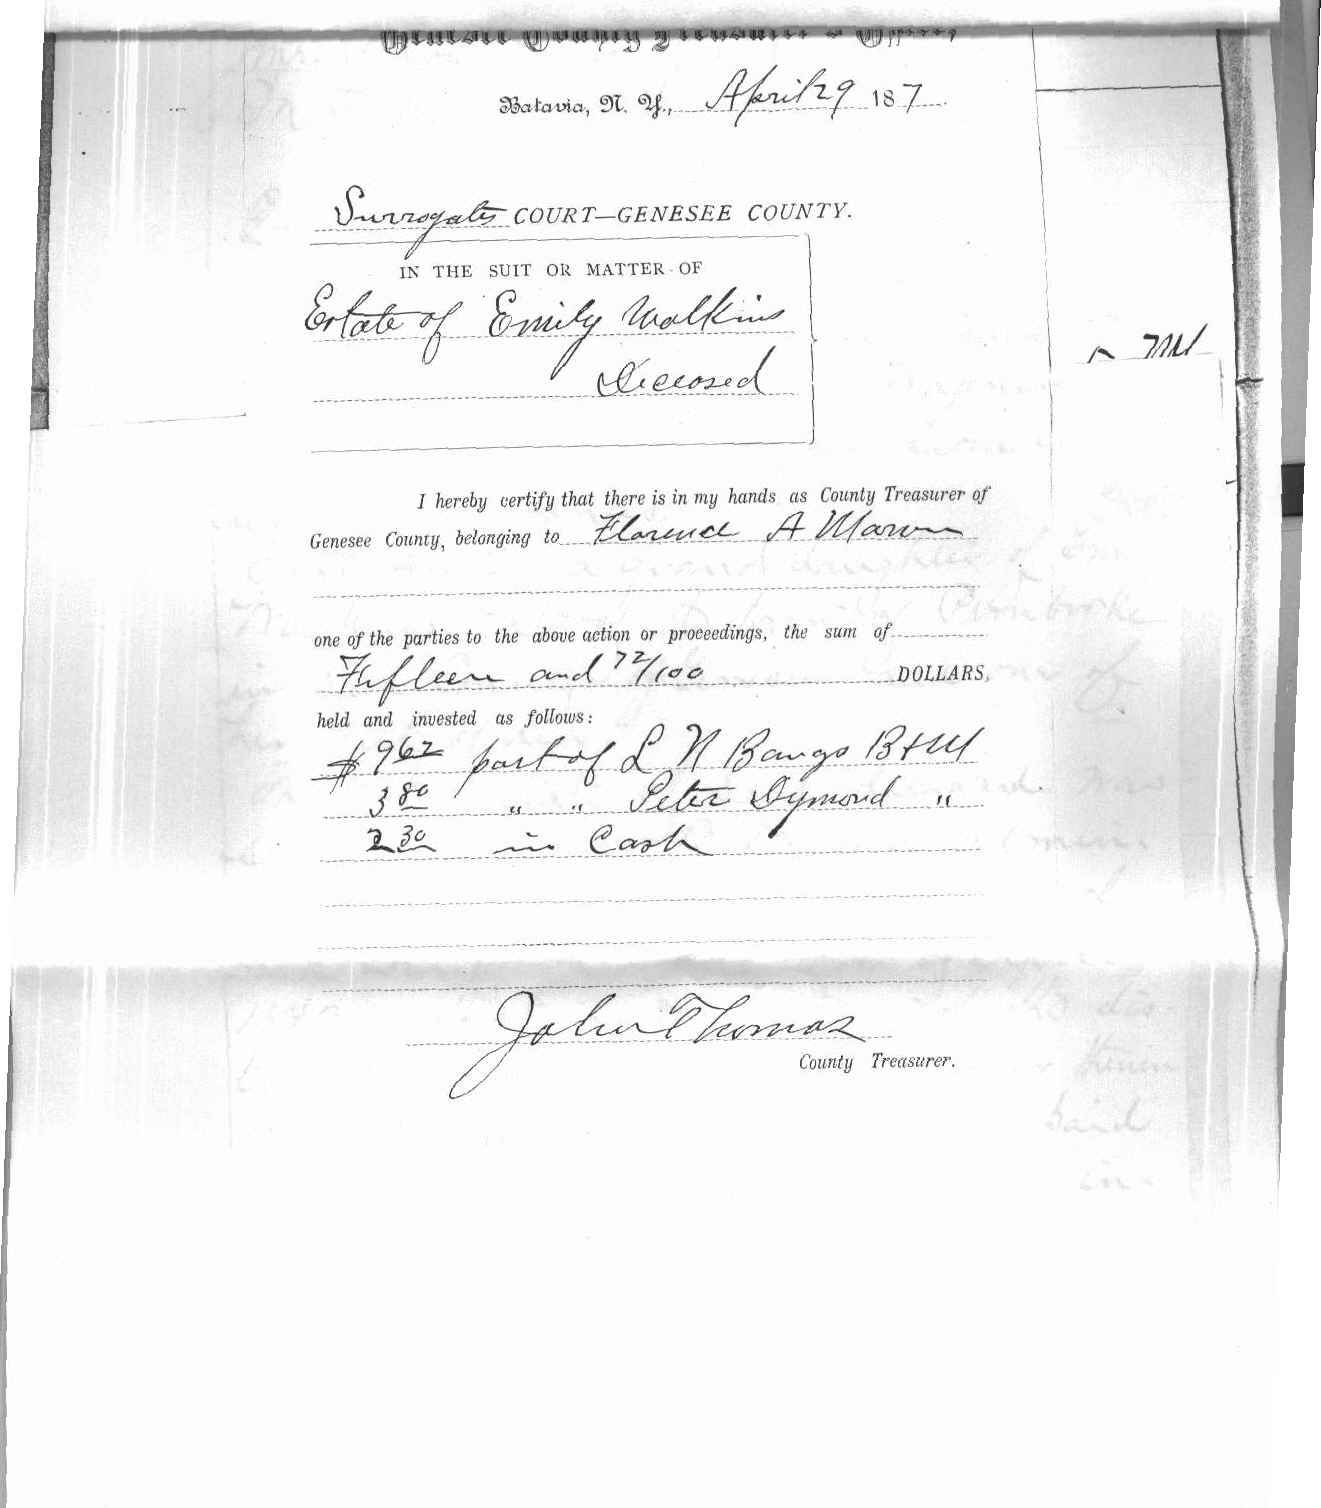 Genesee County Treasurer's Office,
Batavia, N. Y., April 29 187
Surrogates COURT—GENESEE COUNTY.
IN THE SUIT OR MATTER OF
Estate of Emily Watkins
Deceased
I hereby certify that there is in my hands as County Treasurer of
Genesee County, belonging to Florence A
one of the parties to the above action or proceedings, the sum of
Fifteen and 72/100 DOLLARS,
held and invested as follows:
$9 62 part of L N Bangs B+M
3 80 " " Peter Dymond "
2 30 in Cash
John Thomas
County Treasurer.